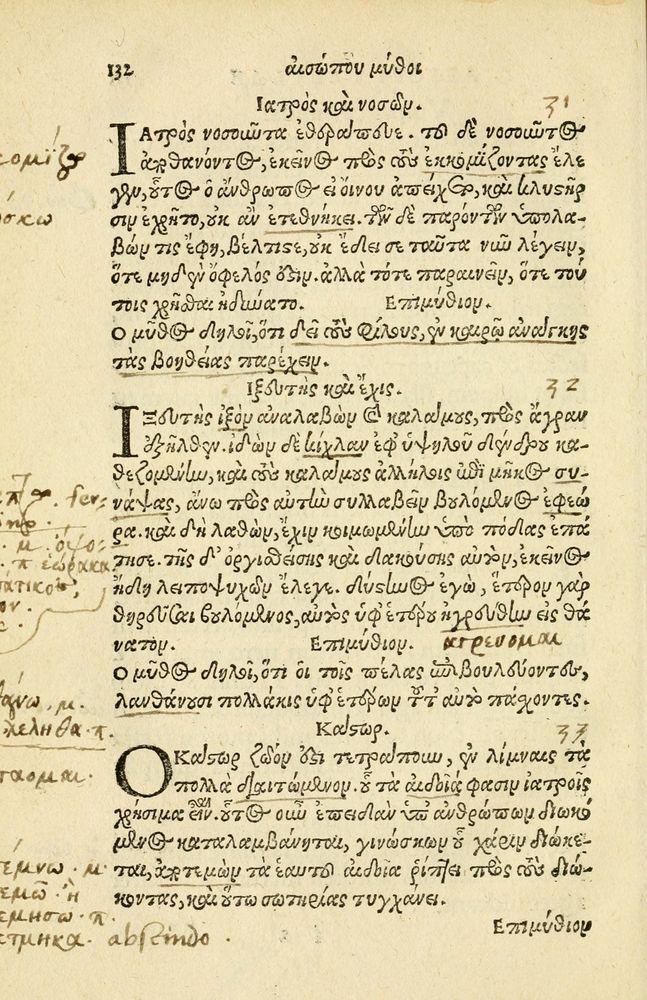 132 αἰσώπου μῦθοι
Ἰατρὸς καὶ νοσῶν. 31
Ἰατρὸς νοσοῦντα ἐθεράπευε. τοῦ δὲ νοσοῦντος
ἀποθανόντος, ἐκεῖνος πρὸς τοὺς ἐκκομίζοντας ἔλε
γεν, οὗτος ὁ ἄνθρωπος εἰ οἴνου ἀπείχετο, καὶ κλυστῆρ
σιν ἐχρῆτο, οὐκ ἂν ἐτεθνήκει. τῶν δὲ παρόντων ὑπολα-
βών τις ἔφη, βέλτιστε, οὐκ ἔδει σε ταῦτα νῦν λέγειν,
ὅτε μηδὲν ὄφελός ἐστιν. ἀλλὰ τότε παραινεῖν, ὅτε τού
τοις χρῆσθαι ἠδύνατο. Ἐπιμύθιον.
Ὁ μῦθος δηλοῖ, ὅτι δεῖ τοὺς φίλους, ἐν καιρῷ ἀνάγκης
τὰς βοηθείας παρέχειν.
Ἰξευτὴς καὶ ἔχις. 32
Ἰξευτὴς ἰξὸν ἀναλαβὼν καὶ καλάμους, πρὸς ἄγραν
ἐξῆλθεν. ἰδὼν δὲ κίχλαν ἐφ' ὑψηλοῦ δένδρου κα-
θεζομένην, καὶ τοὺς καλάμους ἀλλήλοις ἐπὶ μῆκος συ-
νάψας, ἄνω πρὸς αὐτὴν συλλαβεῖν βουλόμενος ἐφεώ
ρα. καὶ δὴ λαθὼν, ἔχιν κοιμωμένην ὑπὸ πόδας ἐπά
τησε. τῆς δ' ὀργισθείσης καὶ δακούσης αὐτὸν, ἐκεῖνος
ἤδη λειποψυχῶν ἔλεγε. δύστηνος ἐγὼ, ἕτερον γὰρ
θηρεῦσαι βουλόμενος, αὐτὸς ὑφ' ἑτέρου ἠγρεύθην εἰς θά
νατον. Ἐπιμύθιον. αγρευομαι
Ὁ μῦθος δηλοῖ, ὅτι οἱ τοῖς πέλας ἐπιβουλεύοντες,
λανθάνουσι πολλάκις ὑφ' ἑτέρων τοῦτ' αὐτὸ πάσχοντες.
Κάστωρ. 33
Ὁ Κάστωρ ζῷόν ἐστι τετράπουν, ἐν λίμναις τὰ
πολλὰ διαιτώμενον. οὗ τὰ αἰδοῖά φασιν ἰατροῖς
χρήσιμα εἶναι. οὗτος οὖν ἐπειδὰν ὑπ' ἀνθρώπων διωκό
μενος καταλαμβάνηται, γινώσκων οὗ χάριν διώκε-
ται, ἀποτεμὼν τὰ ἑαυτοῦ αἰδοῖα ῥίπτει πρὸς τοὺς διώ-
κοντας, καὶ οὕτω σωτηρίας τυγχάνει.
Ἐπιμύθιον
λεληθα. π.
abscindo.